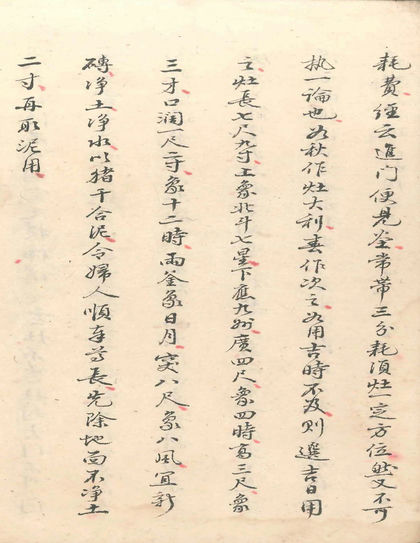 耗費經云進门便見釜常帶三分耗須灶一定方位然又不可
执一論也為秋作灶大利春作次之為用吉時不及則選吉日用
之灶長七尺九寸上象北斗七星下應九州廣四尺象四時高三尺象
三才口濶一尺二寸象十二時兩釜象日月突八尺象八風宜新
磚净土净水以猪干合泥令婦人順奉尊長先除地面不净土
二寸再取泥用